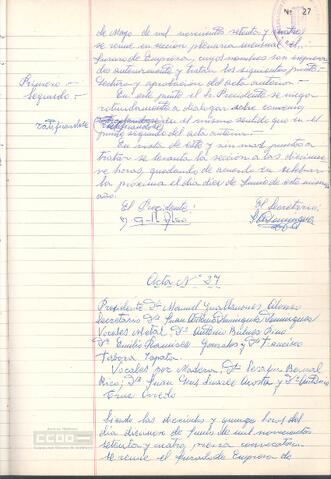 Nº 27
de Mayo de mil novecientos setenta y cuatro,
se reune en seccion plenaria mensual el
Jurado de Empresa, cuyos nombres son
anteriormente y tratan los siguientes puntos:
Primero :- Lectura y aprobación del acta anterior.
Segundo :- En este punto el Sr. Presidente se niega
rotundamente a dialogar sobre convenio
ratificandole en el mismo sentido que en el
punto segundo del acta anterior.
En vista de esto y sin mas puntos a
tratar se levanta la seccion a las diecinue-
ve horas, quedando de acuerdo en celebrar
la próxima el día diez de Junio de este mismo
año.
El Presidente: El Secretario:
Acta Nº 27
Presidente Dn Manuel Alonso
Secretario Dn Juan Dominguez Dominguez
Vocales Metal: Dn Antonio Pino
Dn Emilio Gonzalez y Dn Francisco
Zapata
Vocales por Madera, Dn Bernal
Rico; Dn Juan Luis Suarez y Dn Antonio
Cruz Oviedo
Siendo las dieciseis y quince horas del
día diecinueve de Junio de mil novecientos
setenta y cuatro, previa convocatoria
se reune el Jurado de Empresa de
Archivo Histórico
CCOO